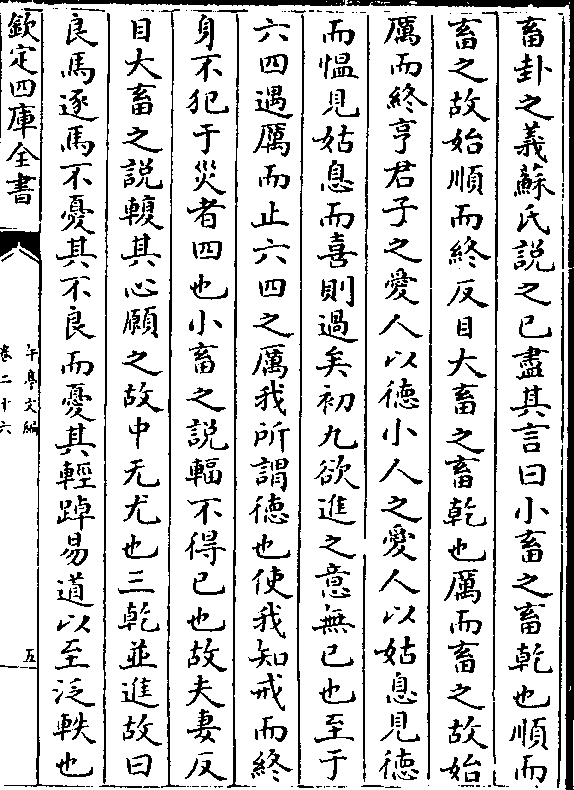 畜卦之義蘇氏說之已盡其言曰小畜之畜乾也順而
畜之故始順而終反目大畜之畜乾也厲而畜之故始
厲而終亨君子之愛人以德小人之愛人以姑息見德
而慍見姑息而喜則過矣初九欲進之意無已也至于
六四遇厲而止六四之厲我所謂德也使我知戒而終
身不犯于災者四也小畜之說輻不得已也故夫妻反
目大畜之說輹其心願之故中无尤也三乾並進故曰
良馬逐馬不憂其不良而憂其輕踔易道以至泛軼也
欽定四庫全書
午亭文編
卷二十六
五